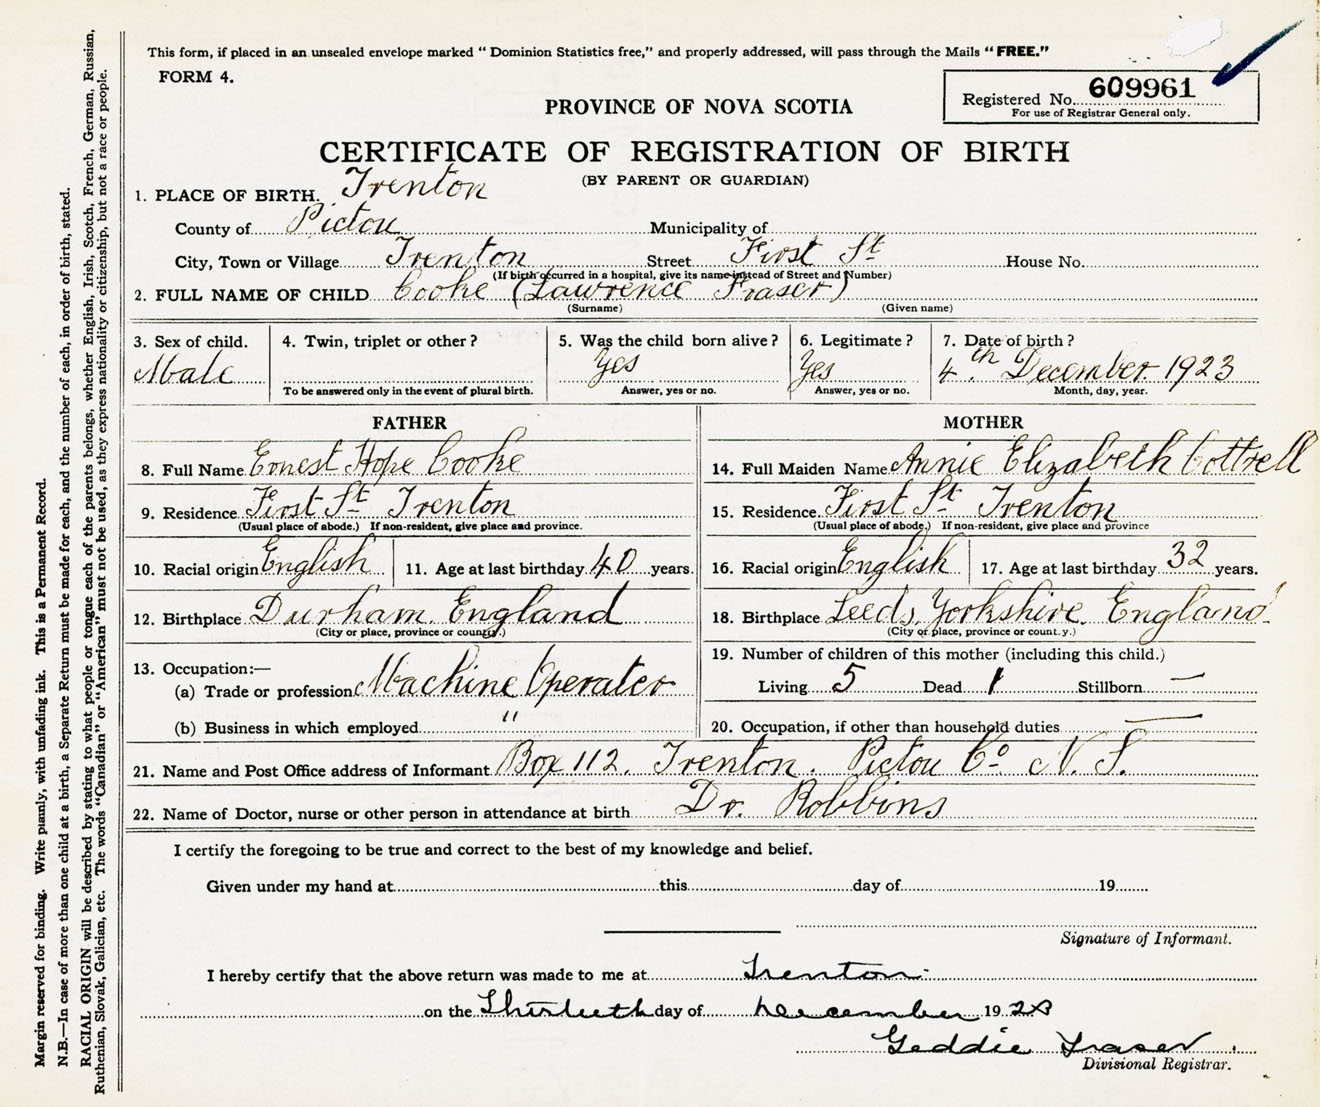 This form, if placed in an unsealed envelope marked “ Dominion Statistics free,” and properly addressed, will pass through the Mails “ FREE.”
FORM 4.
Registered No. 609961
For use of Registrar General only.
PROVINCE OF NOVA SCOTIA
CERTIFICATE OF REGISTRATION OF BIRTH
(BY PARENT OR GUARDIAN)
1. PLACE OF BIRTH. Trenton
County of Pictou Municipality of
City, Town or Village Trenton Street First St House No.
(If birth occurred in a hospital, give its name instead of Street and Number)
2. FULL NAME OF CHILD Cooke (Lawrence Fraser)
(Surname) (Given name)
3. Sex of child. 4. Twin, triplet or other? 5. Was the child born alive? 6. Legitimate? 7. Date of birth?
Male Yes Yes 4th December 1923
To be answered only in the event of plural birth. Answer, yes or no. Answer, yes or no. Month, day, year.
FATHER MOTHER
8. Full Name Ernest Hope Cooke 14. Full Maiden Name Annie Elizabeth Cottrell
9. Residence First St Trenton 15. Residence. First St Trenton
(Usual place of abode.) If non-resident, give place and province. (Usual place of abode.) If non-resident, give place and province
10. Racial origin English 11. Age at last birthday 40 years. 16. Racial origin English 17. Age at last birthday 32 years.
12. Birthplace Durham. England 18. Birthplace Leeds, Yorkshire. England.
(City or place, province or county.) (City or place, province or count.y.)
13. Occupation:— 19. Number of children of this mother (including this child.)
(a) Trade or profession Machine Operator Living 5 Dead 1 Stillborn —
(b) Business in which employed " 20. Occupation, if other than household duties —
21. Name and Post Office address of Informant Box 112. Trenton. Pictou Co N. S.
22. Name of Doctor, nurse or other person in attendance at birth Dr. Robbins
I certify the foregoing to be true and correct to the best of my knowledge and belief.
Given under my hand at this day of 19
Signature of Informant.
I hereby certify that the above return was made to me at Trenton.
on the Thirtieth day of December 1923
Geddie Fraser
Divisional Registrar.
Margin reserved for binding. Write plainly, with unfading ink. This is a Permanent Record.
N.B.—In case of more than one child at a birth, a Separate Return must be made for each, and the number of each, in order of birth, stated.
RACIAL ORIGIN will be described by stating to what people or tongue each of the parents belongs, whether English, Irish, Scotch, French, German, Russian,
Ruthenian, Slovak, Galician, etc. The words “Canadian” or “American” must not be used, as they express nationality or citizenship, but not a race or people.